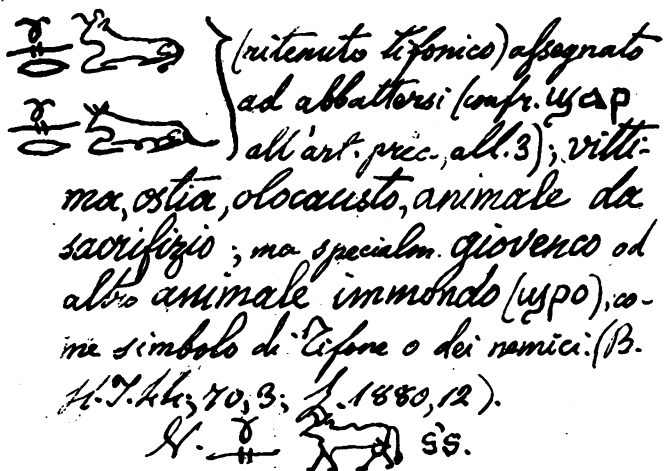 (ritenuto tifonico) assegnato
ad abbattersi (confr. ϣⲁⲣ
all'art. prec., all. 3); vitti-
ma, ostia, olocausto, animale da
sacrifizio; ma specialm. giovenco od
altro animale immondo (ϣⲣⲟ), co-
me simbolo di Tifone o dei nemici. (B.
70, 3; 1880, 12).
N. S'S.